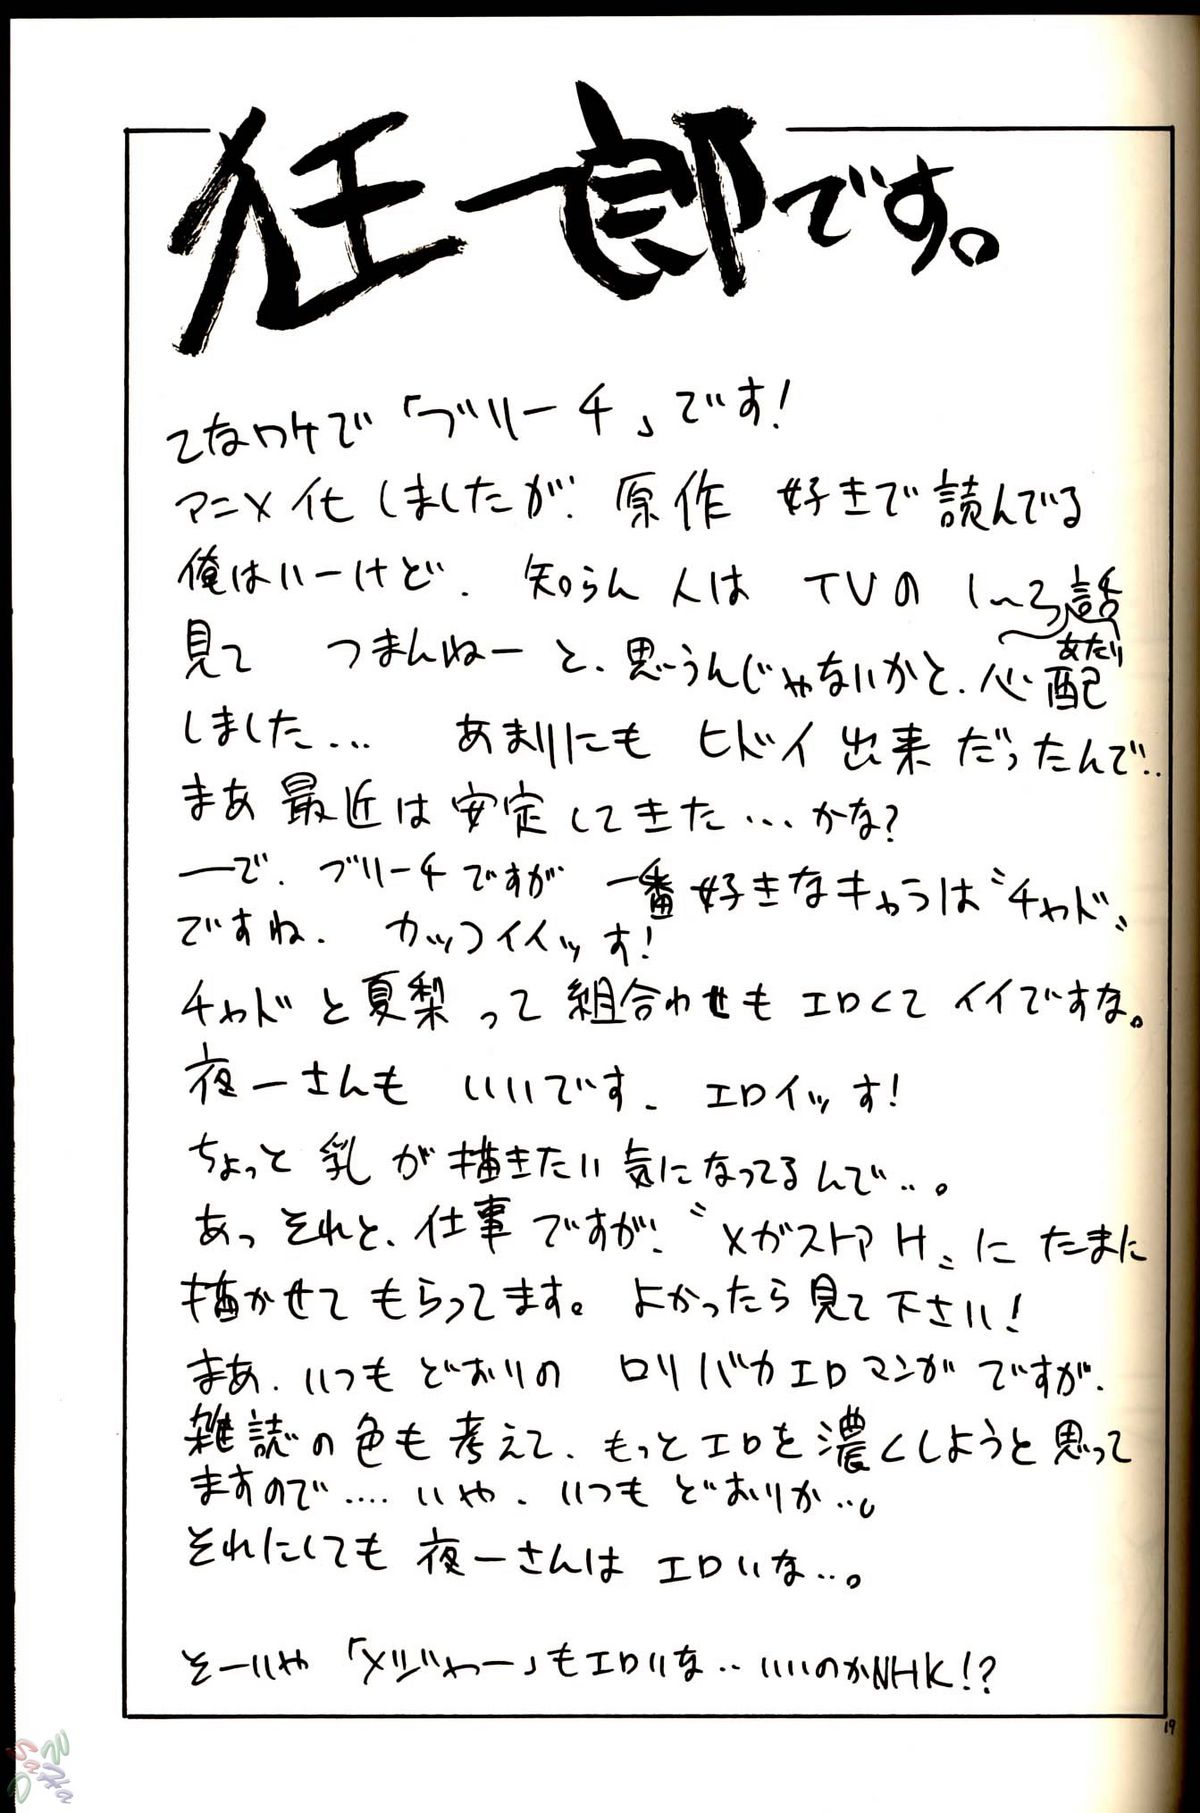 狂一郎です。
てなワケで「ブリーチ」です!
アニメ化しましたが、原作 好きで読んでる
俺はいーけど、知らん人は TVの 1〜3話
あたり
見て つまんねーと、思うんじゃないかと、心配
しました... あまりにも ヒドイ出来だったんで..
まあ最近は安定してきた...かな?
―で、ブリーチですが 一番好きなキャラは〝チャド〟
ですね、カッコイイッす!
チャドと夏梨って組合わせもエロくてイイですな。
夜一さんも いいです、エロイッす!
ちょっと乳が描きたい気になってるんで..。
あっそれと、仕事ですが、〝メガストアH〟にたまに
描かせてもらってます。よかったら見て下さい!
まあ、いつもどおりの ロリバカエロマンガですが、
雑誌の色も考えて、もっとエロを濃くしようと思って
ますので....いや、いつもどおりか..。
それにしても 夜一さんは エロいな..。
そーいや「メジャー」もエロいな..いいのかNHK!?
19